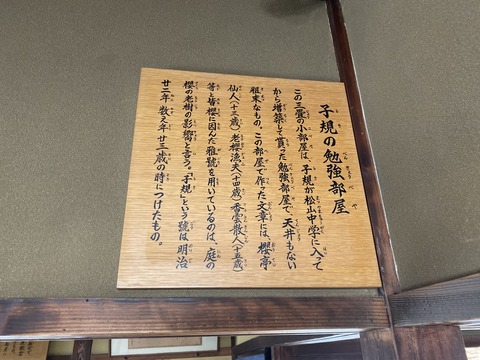 子規の勉強部屋
この三畳の小部屋は、子規が松山中学に入って
から増築して貰った勉強部屋で、天井もない
粗末なもの。この部屋で作った文章には、櫻亭
仙人(十三歳)老櫻漁夫(十四歳)香雲散人(十五歳
等と皆櫻に因んだ雅號を用いているのは、庭の
櫻の老樹の影響と言う。「子規」という號は明治
廿二年 数え年廿三歳の時につけたもの。